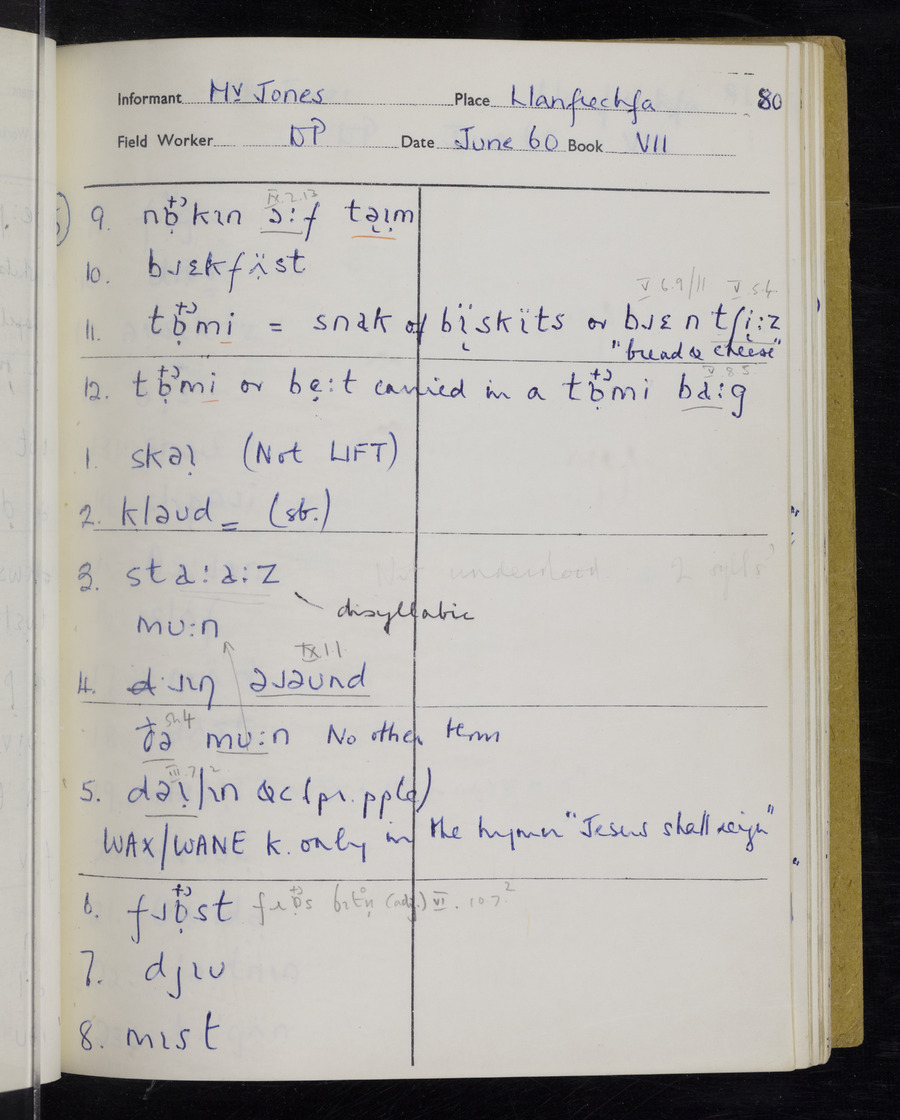 Informant Mr Jones Place Llanfrechfa 80
Field Worker DP Date June 60 Book VII
IX.2.13
9. nɒ̣kɪn ə:f təɪm
10. bɹɛkfʌ̈st
V 6.9/11 V 5.4
11. tɒ̣mi = snak of bïskïts or bɹɛ n tʃi̤:z
"bread & cheese"
V 8 5
12. tɒ̣mi or be̞:t carried in a tɒ̣mi ba:g
1. skəɪ (Not LIFT)
2. kləud = (sb.)
3. sta:a:z
disyllabic
mu:n
IX 1 1
4. ɹɪŋ əɹəund
ðə mu:n No other term
III.7 2
5. dəɪ/ɪn &c (pr. pple)
WAX/WANE k. only in the hymn "Jesus shall reign"
6. fɹɒ̣st fɹɒ̣s bɪtn̩ (adj.) VI. 107²
7. djɪu
8. mɪst